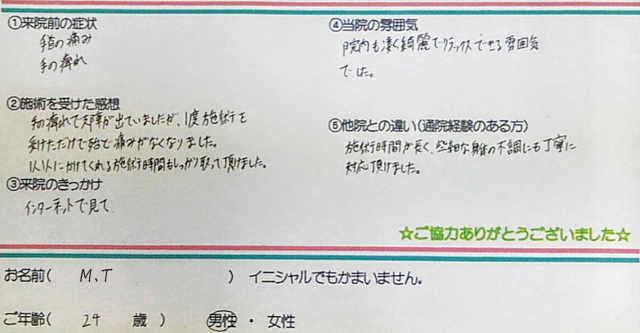 ①来院前の症状
首の痛み
手の痺れ
②施術を受けた感想
手の痺れで支障が出ていましたが、1度施術を
受けただけで殆ど痛みがなくなりました。
1人1人にかけてくれる施術時間もしっかり取って頂けました。
③来院のきっかけ
インターネットで見て
④当院の雰囲気
院内も凄く綺麗でリラックスできる雰囲気
でした。
⑤他院との違い(通院経験のある方)
施術時間が長く、些細な身体の不調にも丁寧に
対応頂けました。
☆ご協力ありがとうございました☆
お名前( M.T ) イニシャルでもかまいません。
ご年齢( 24 歳 ) 男性 ・ 女性